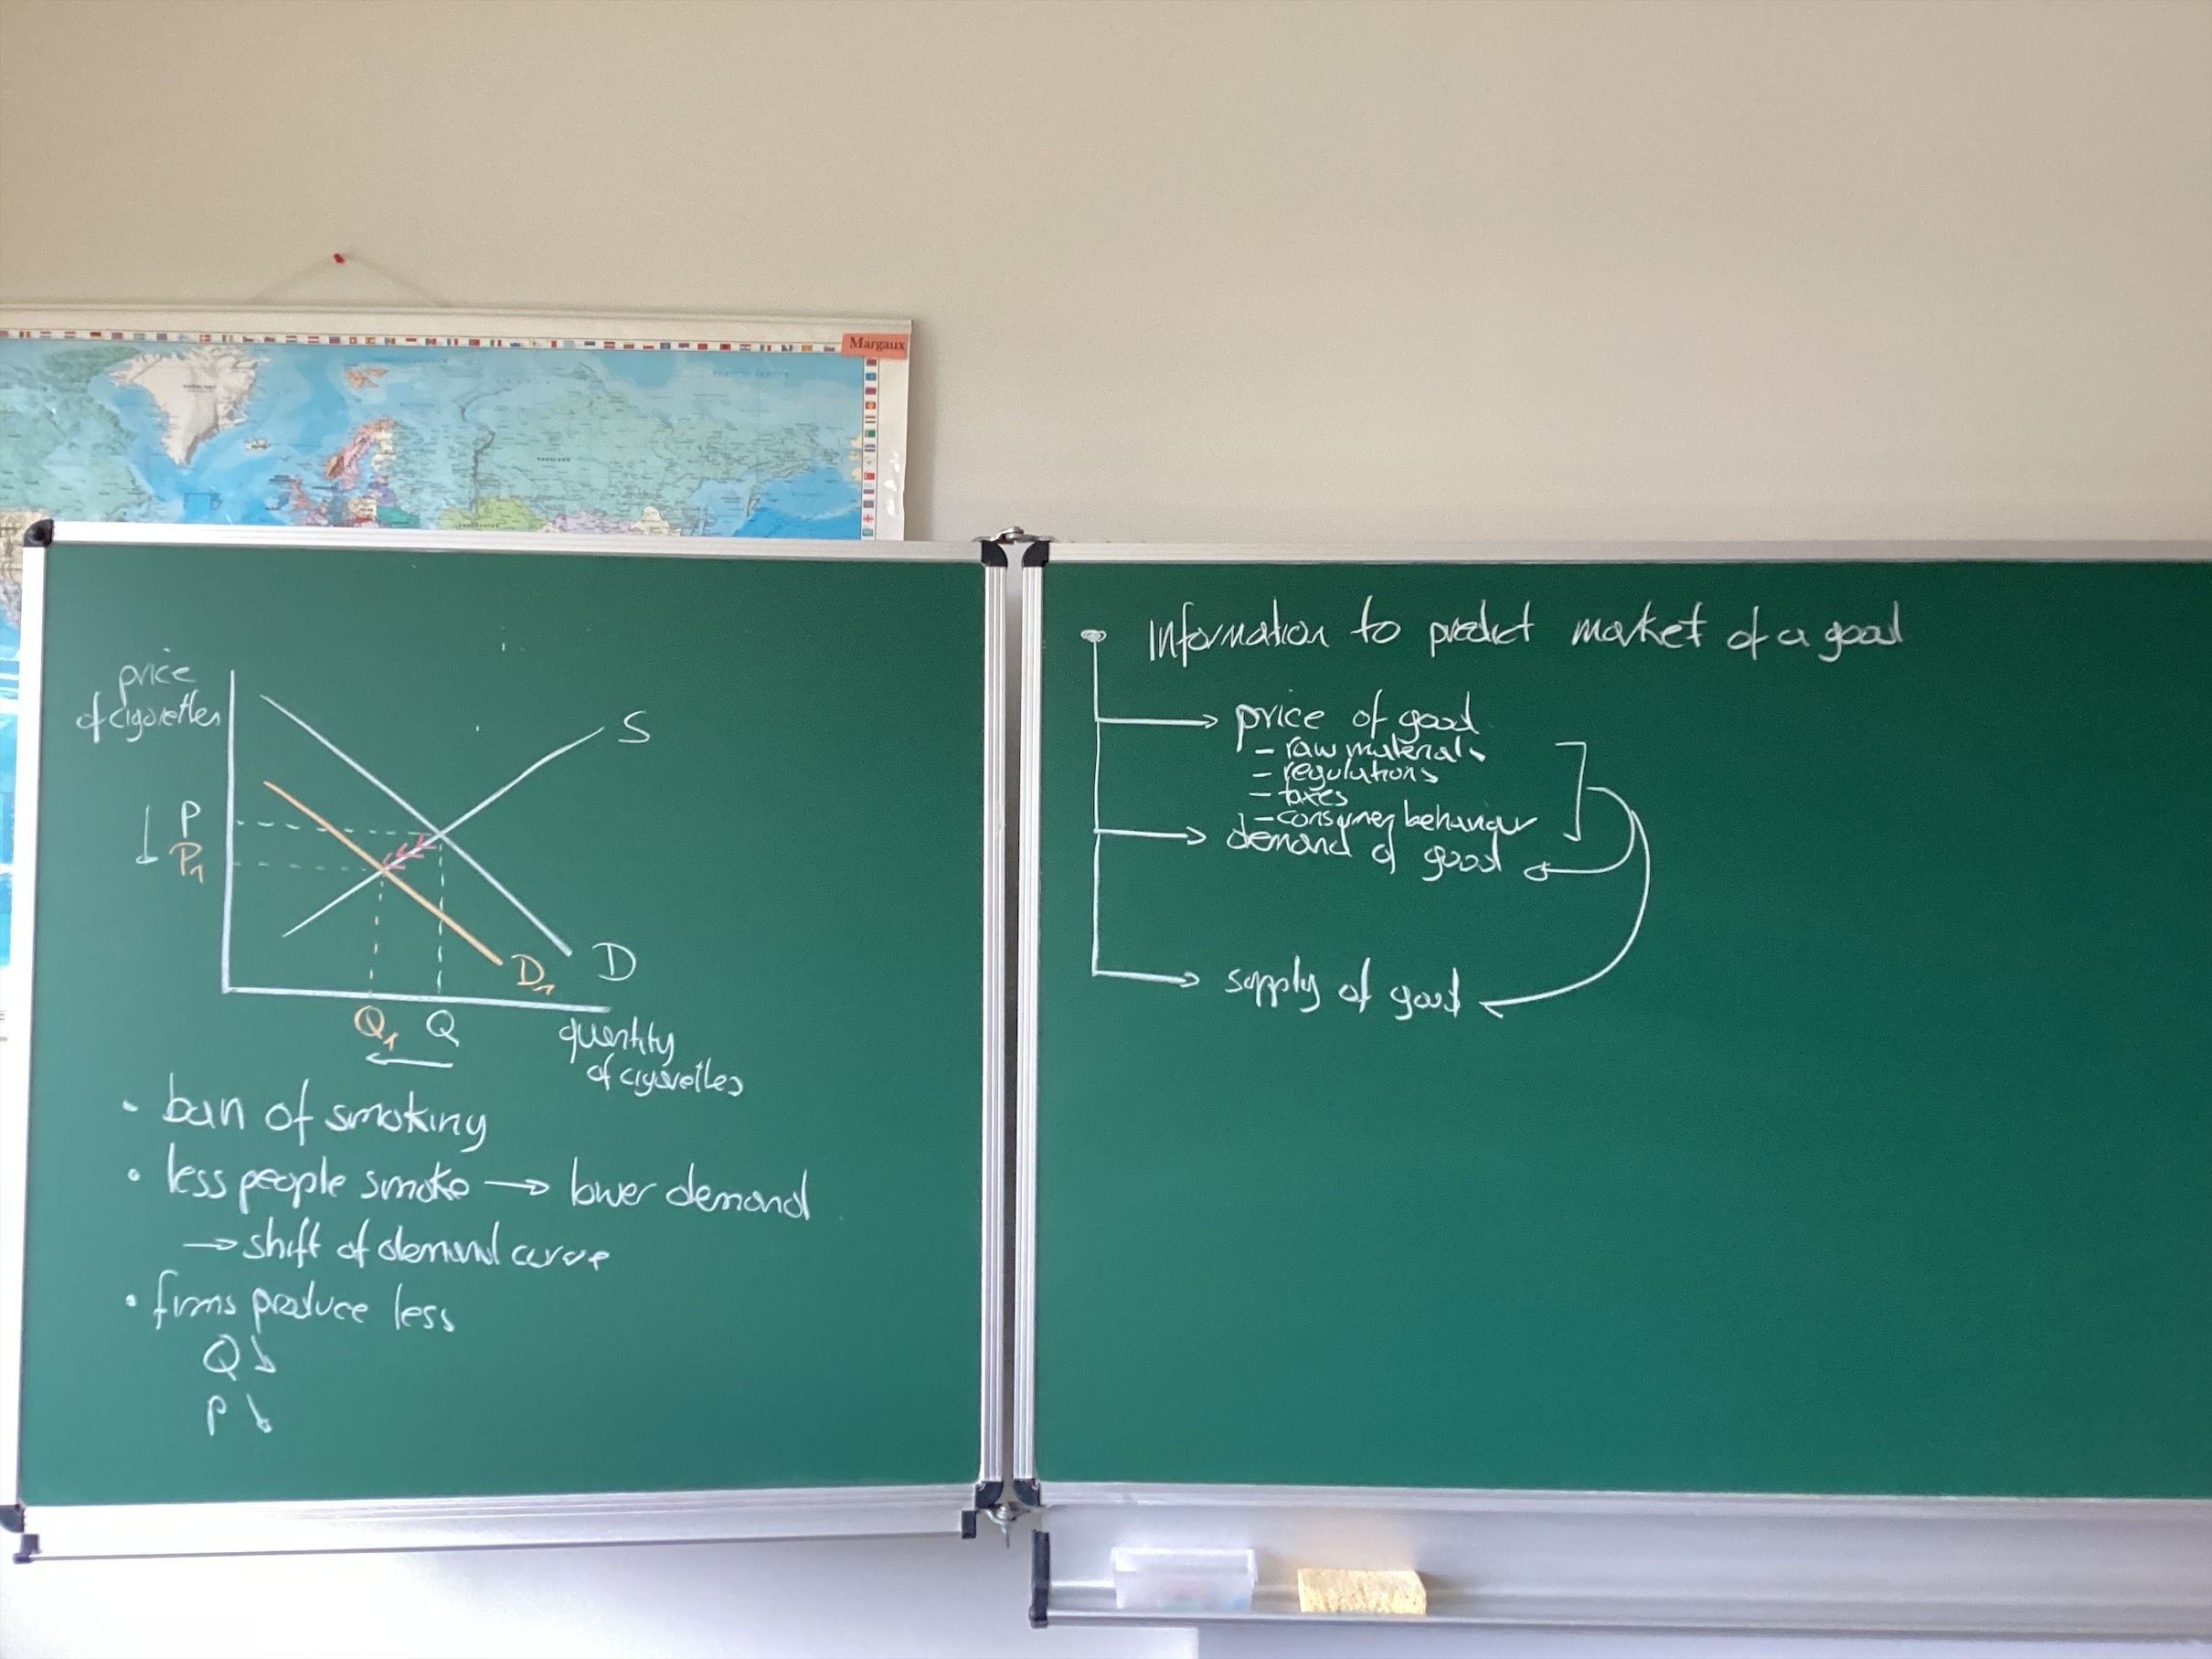 Margaux
price
of cigarettes
S
P
P1
D1
D
Q1
Q
quantity
of cigarettes
• ban of smoking
• less people smoke → lower demand
→ shift of demand curve
• firms produce less
Q ↓
P ↓
Information to predict market of a good
→ price of good
- raw materials
- regulations
- taxes
- consumer behaviour
→ demand of good
→ supply of good